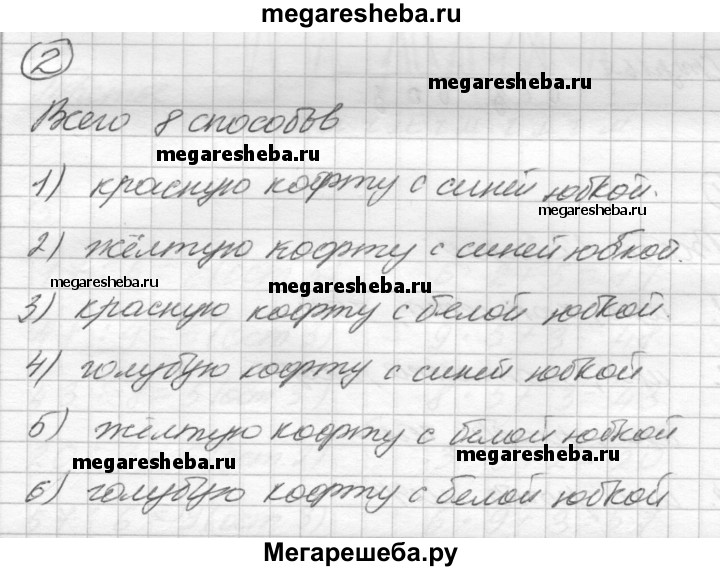 megaresheba.ru
2
megaresheba.ru
Всего 8 способов
megaresheba.ru
1) красную кофту с синей юбкой.
megaresheba.ru
2) жёлтую кофту с синей юбкой.
megaresheba.ru
3) красную кофту с белой юбкой.
4) голубую кофту с синей юбкой
5) жёлтую кофту с белой юбкой
megaresheba.ru megaresheba.ru
6) голубую кофту с белой юбкой
Мегарешеба.ру